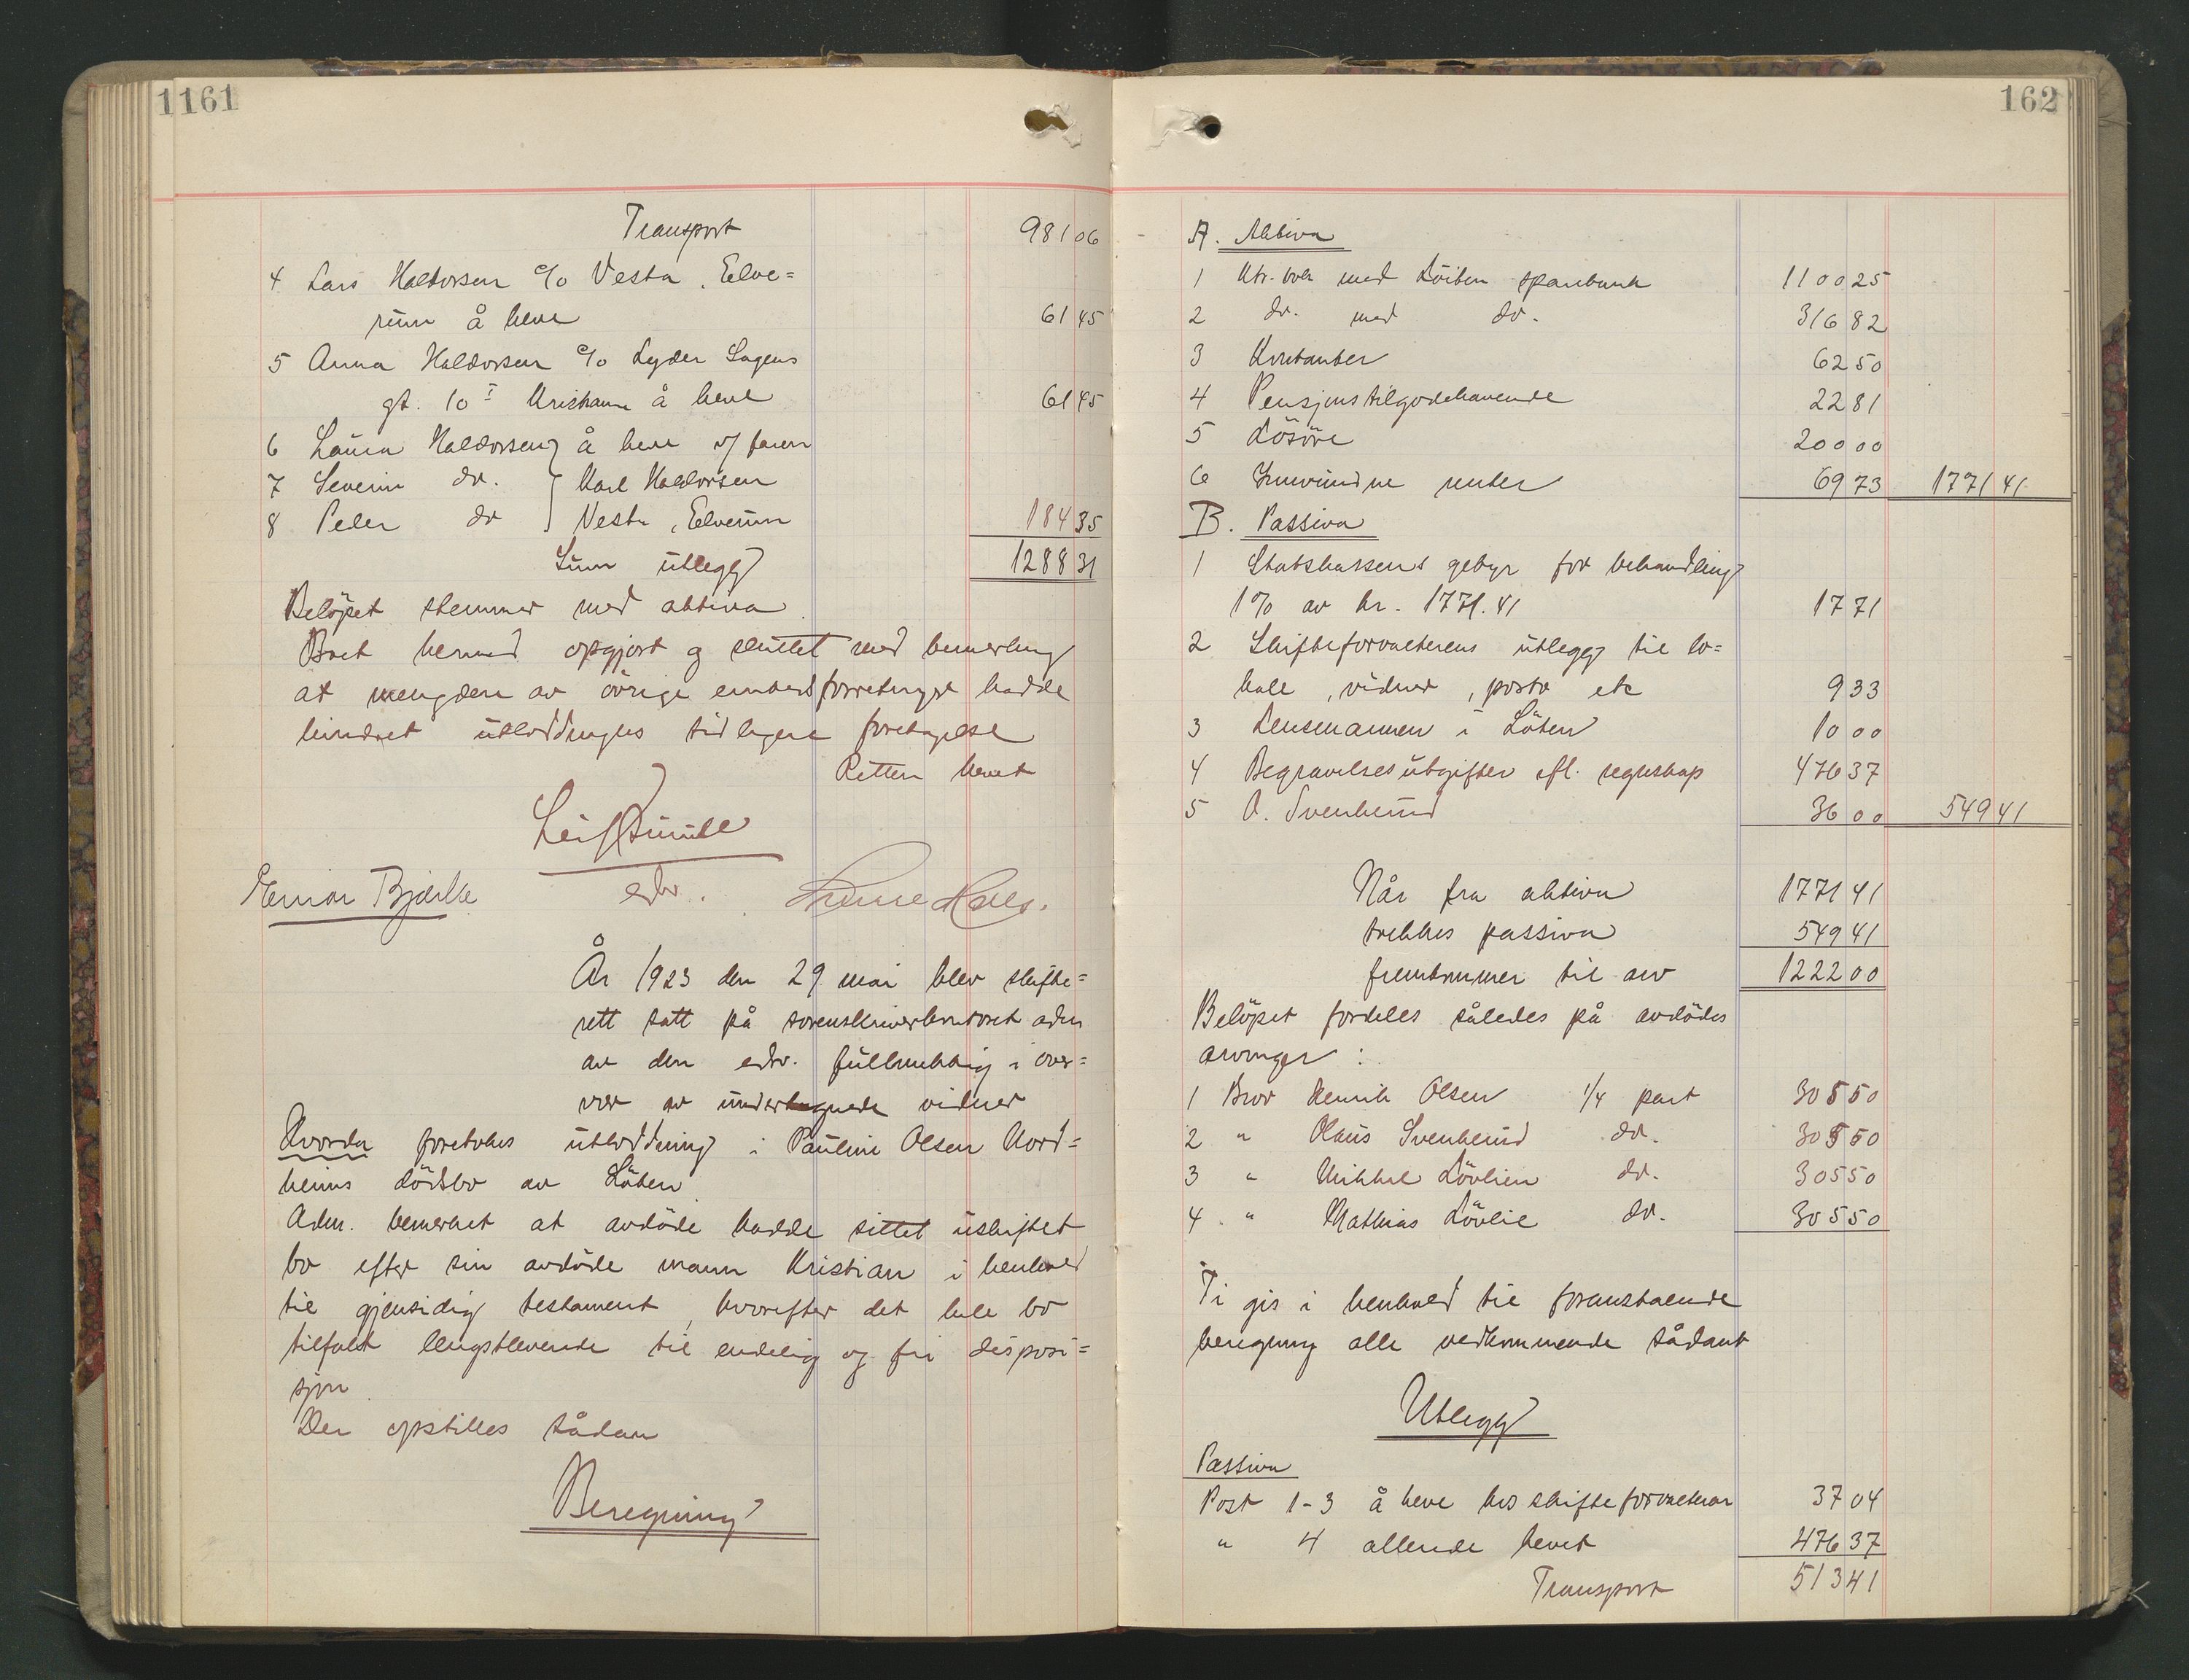 1161
Transport 981 06
4 Lars Haldorsen c/o Vesta, Elve=
rum å heve 61 45
5 Anna Haldorsen c/o Lyder Sagens
gt. 10 I Kristiania å heve 61 45
6 Laura Haldorsen } å heve v/ faren
7 Severin do. } Karl Haldorsen
8 Peder do } Vesta, Elverum 184 35
Sum utlegg 1288 31
Beløpet stemmer med aktiva.
Boet hermed opgjort og sluttet med bemerkning
at mengden av övrige embedsforretninger hadde
hindret utlodningens tidligere foretagelse
Retten hevet
Einar Bjørke
edsv.
År 1923 den 29 mai blev skifte=
rett satt på sorenskriverkontoret adm
av den edsv. fullmektig i over=
vær av undertegnede vidner
Hvorda foretokes utlodning i Pauline Olsen Nord=
heims dödsbo av Löten.
Adm. bemerket at avdöde hadde sittet i uskiftet
bo efter sin avdöde mann Kristian i henhold
til gjensidig testament, hvorefter det hele bo
tilfalt lengstlevende til endelig og fri disposi=
sjon.
Der opstilles sådan
Beregning
162
A. Aktiva
1 Ktr. bok med Löiten sparebank 1100 25
2 do. med do. 316 82
3 Kontanter 62 50
4 Pensjonstilgodehavende 22 81
5 Lösöre 200 00
6 Innvundne renter 69 73 1771 41
B. Passiva
1 Statskassens gebyr for behandling
1% av kr. 1771.41 17 71
2 Skifteforvalterens utlegg til lo=
kale, vidner, porto etc 9 33
3 Lensmannen i Löten 10 00
4 Begravelsesutgifter efl. regnskap 476 37
5 O. Svenkerud 36 00 549 41
Når fra aktiva 1771 41
trekkes passiva 549 41
fremkommer til arv 1222 00
Belöpet fordeles således på avdödes
arvinger:
1 Bror Henrik Olsen 1/4 part 305 50
2 " Olaus Svenkerud do. 305 50
3 " Mikkel Lövlien do. 305 50
4 " Mathias Lövlie do. 305 50
Ti gis i henhold til foranstaende
beregning alle vedkommende sådant
Utlegg
Passiva
Post 1-3 å heve hos skifteforvalteren 37 04
" 4 allerede hevet 476 37
Transport 513 41